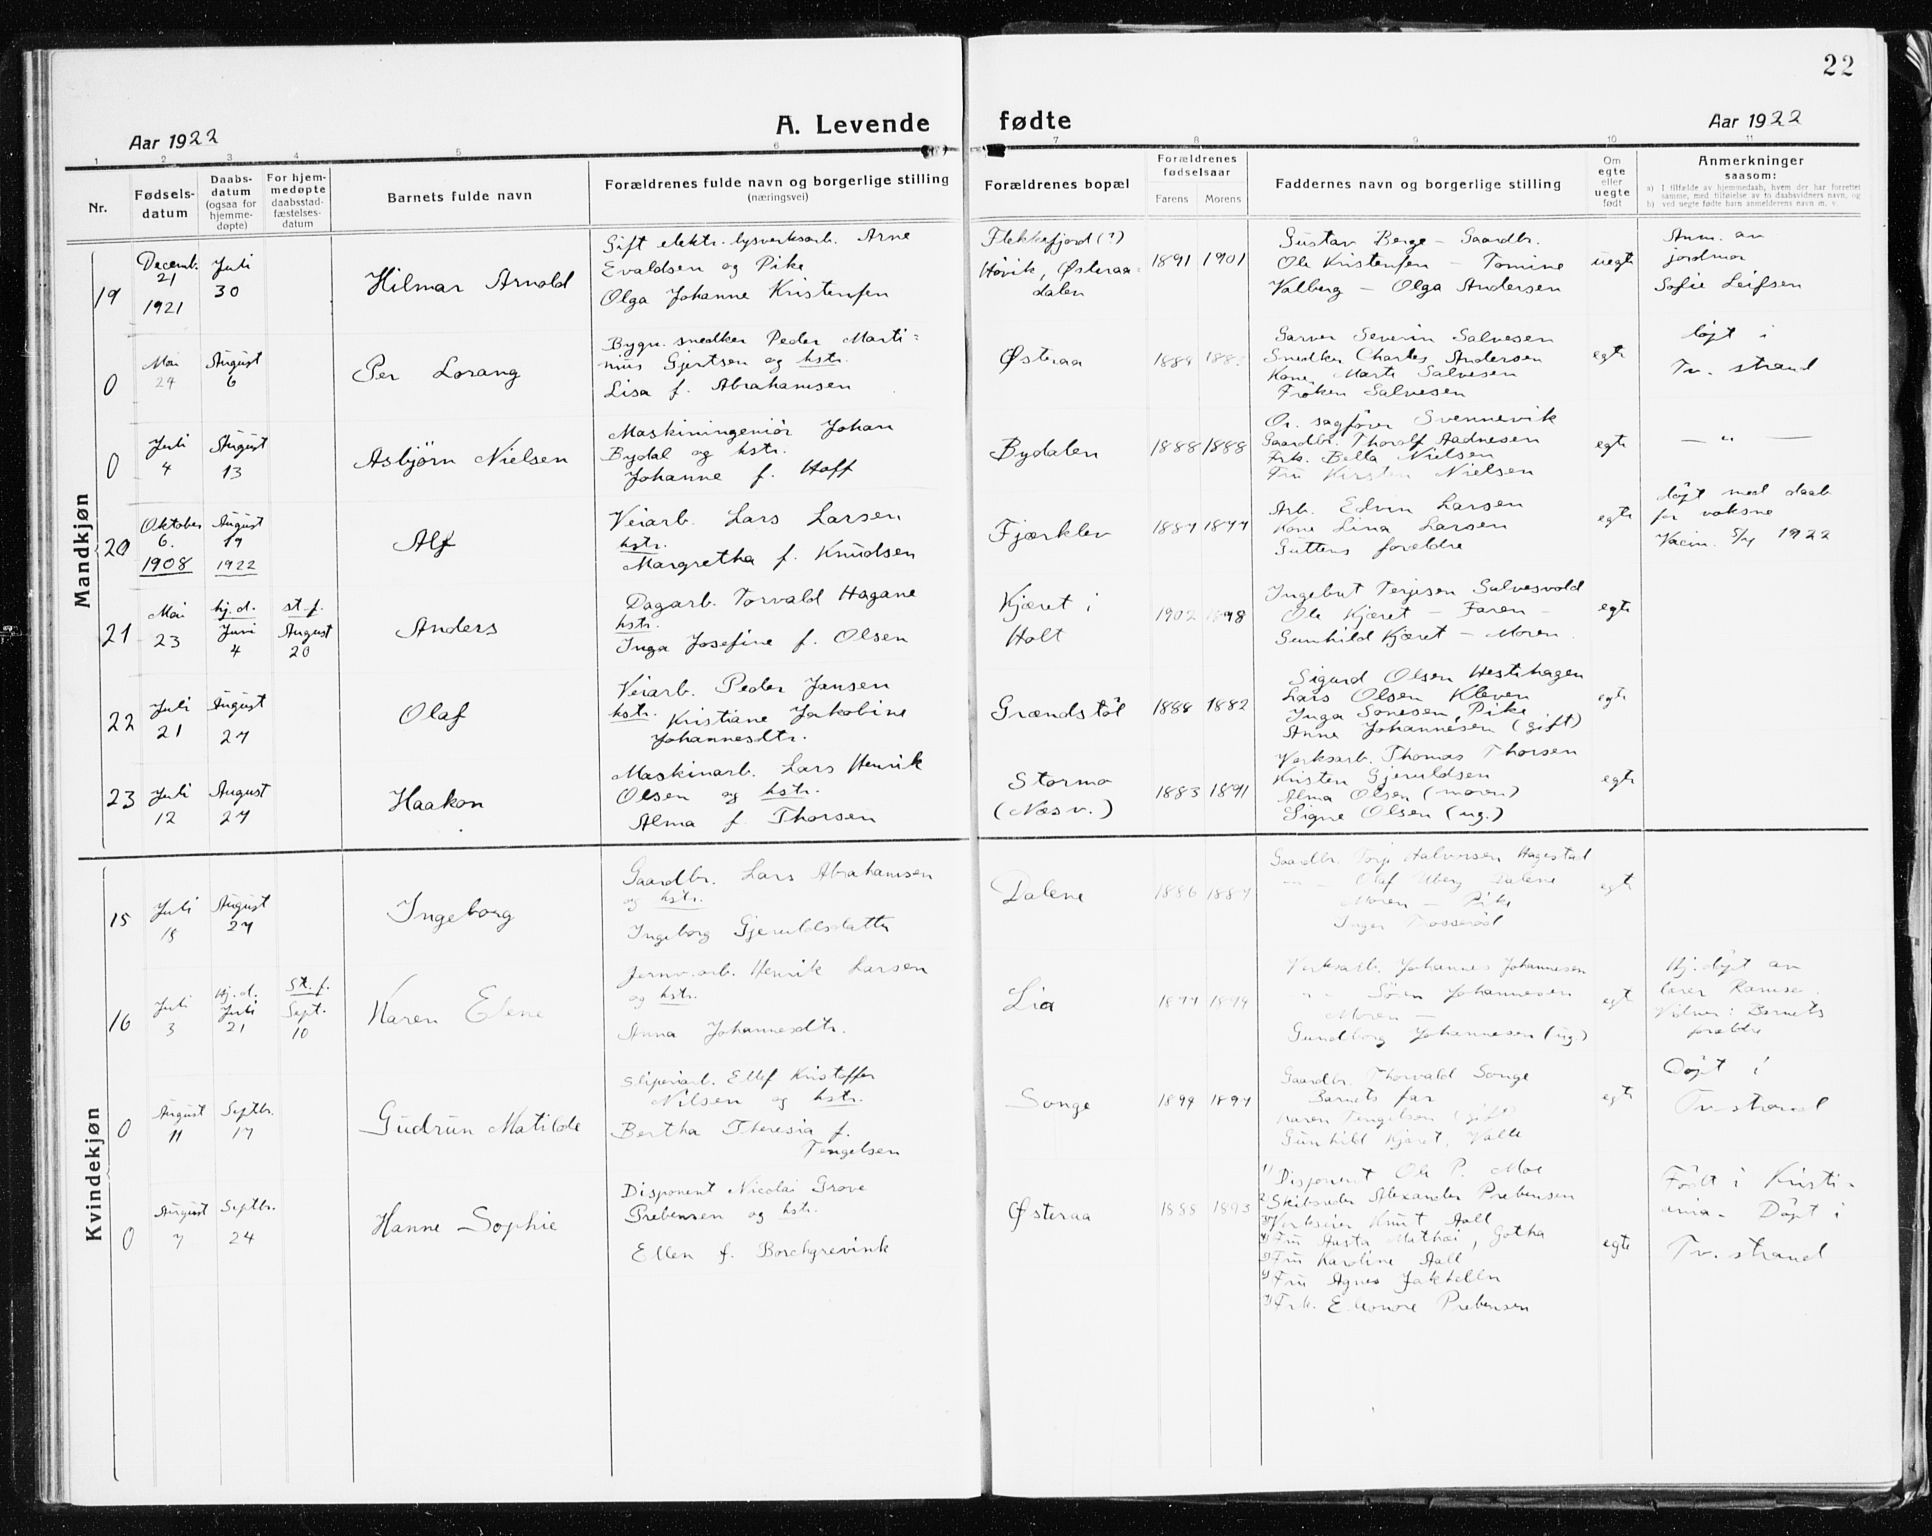 22
A. Levende fødte
Aar 1922
Aar 1922
1 2 3 4 5 6 7 8 9 10 11
Nr.
Fødsels-
datum
Daabs-
datum
(ogsaa for
hjemme-
døpte)
For hjem-
medøpte
daabsstad-
fæstelses-
datum
Barnets fulde navn
Forældrenes fulde navn og borgerlige stilling
(næringsvei)
Forældrenes bopæl
Forældrenes
fødselsaar
Farens Morens
Faddernes navn og borgerlige stilling
Om
egte
eller
uegte
født
Anmerkninger
saasom:
a) I tilfælde av hjemmedaab, hvem der har forrettet
samme, med tilføielse av to daabsvidners navn, og
b) ved uegte fødte barn anmelderens navn m. v.
Mandkjøn
19
Decemb.
21
1921
Juli
30
Hilmar Arnold
Gift elektr. lysverksarb. Arne
Evaldsen og Pike
Olga Johanne Kristensen
Flekkefjord (?)
Høvik, Østeraa-
dalen
1891 1901
Gustav Berge - Gaardbr.
Ole Kristensen - Tomine
Valberg - Olga Andersen
uegte
Anm. av
jordmor
Sofie Leifsen
0
Mai
24
August
6
Per Lorang
Bygn. snedker Peder Marti-
nius Gjertsen og hstr.
Lisa f. Abrahamsen
Østeraa
1889
Garver Severin Salvesen
Snedker Charles Andersen
Kone Marte Salvesen
Frøken Salvesen
egte
Døpt i
Tv. strand
0
Juli
4
August
13
Asbjørn Nielsen
Maskiningeniør Johan
Bydal og hstr.
Johanne f. Hoff
Bydalen
1888 1888
Or. sagfører Svennevik
Gaardbr. Thorolf Aadnesen
Frk. Bella Nielsen
Fru Kirsten Nielsen
egte
— " —
20
Oktober
6.
1908
August
19
1922
Alf
Veiarb. Lars Larsen
hstr.
Margretha f. Knudsen
Fjærklev
1887 1877
Arb. Edvin Larsen
Kone Lina Larsen
Guttens forældre
egte
døpt med daab
for voksne
Vacin. 5/4 1922
21
Mai
23
hj. d.
Juni
4
st. f.
August
20
Anders
Dagarb. Torvald Hagane
hstr.
Inga Josefine f. Olsen
Kjæret i
Holt
1902 1898
Ingebret Terjesen Salvesvold
Ole Kjæret - Faren -
Gunhild Kjæret - Moren
egte
22
Juli
21
August
27
Olaf
Veiarb. Peder Jansen
hstr. Kristiane Jakobine
Johannesdtr.
Grændstøl
1888 1882
Sigurd Olsen Hesthagen
Lars Olsen Kleven
Inga Sonesen, Pike
Anne Johannesen (gift)
egte
23
Juli
12
August
27
Haakon
Maskinarb. Lars Henrik
Olsen og hstr.
Alma f. Thorsen
Stormo
(Næs v.)
1883 1891
Verksarb. Thomas Thorsen
Kristen Gjeruldsen
Alma Olsen (moren)
Signe Olsen (ug.)
egte
Kvindekjøn
15
Juli
18
August
27
Ingeborg
Gaardbr. Lars Abrahamsen
og hstr.
Ingeborg Gjeruldsdatter
Dalene
1886 1887
Gaardbr. Torje Halvorsen Hagestad
— " — Olaf Uberg Dalene
Moren - Pike
Inger Trosserød
egte
16
Juli
3
Hj. d.
Juli
21
St. f.
Sept.
10
Karen Elene
Jernv. arb. Henrik Larsen
og hstr.
Anna Johannesdtr.
Lia
1877 1879
Verksarb. Johannes Johannesen
— " — Søren Johannesen
Moren —
Gundborg Johannesen (ug.)
egte
Hj. døpt av
lærer Ramse.
Vitner: Barnets
forældre
0
August
11
Septbr.
17
Gudrun Matilde
Sliperiarb. Ellef Kristoffer
Nilsen og hstr.
Bertha Theresia f.
Tengelsen
Songe
1899 1897
Gaardbr. Thorvald Songe
Barnets far
Karen Tengelsen (gift)
Gunhild Kjæret, Valle
egte
Døpt i
Tv. strand
0
August
7
Septbr.
24
Hanne Sophie
Disponent Nicolai Grove
Prebensen og hstr.
Ellen f. Borchgrevink
Østeraa
1888 1893
1) Disponent Ole P. Moe
2) Skibsreder Alexander Prebensen
3) Verkseier Knut Aall
4) Fru Aasta Mathei, Gotha
5) Fru Karoline Aall
6) Fru Agnes
7) Frk. Eleonore Prebensen
egte
Født i Kristi-
ania. Døpt i
Tv. strand